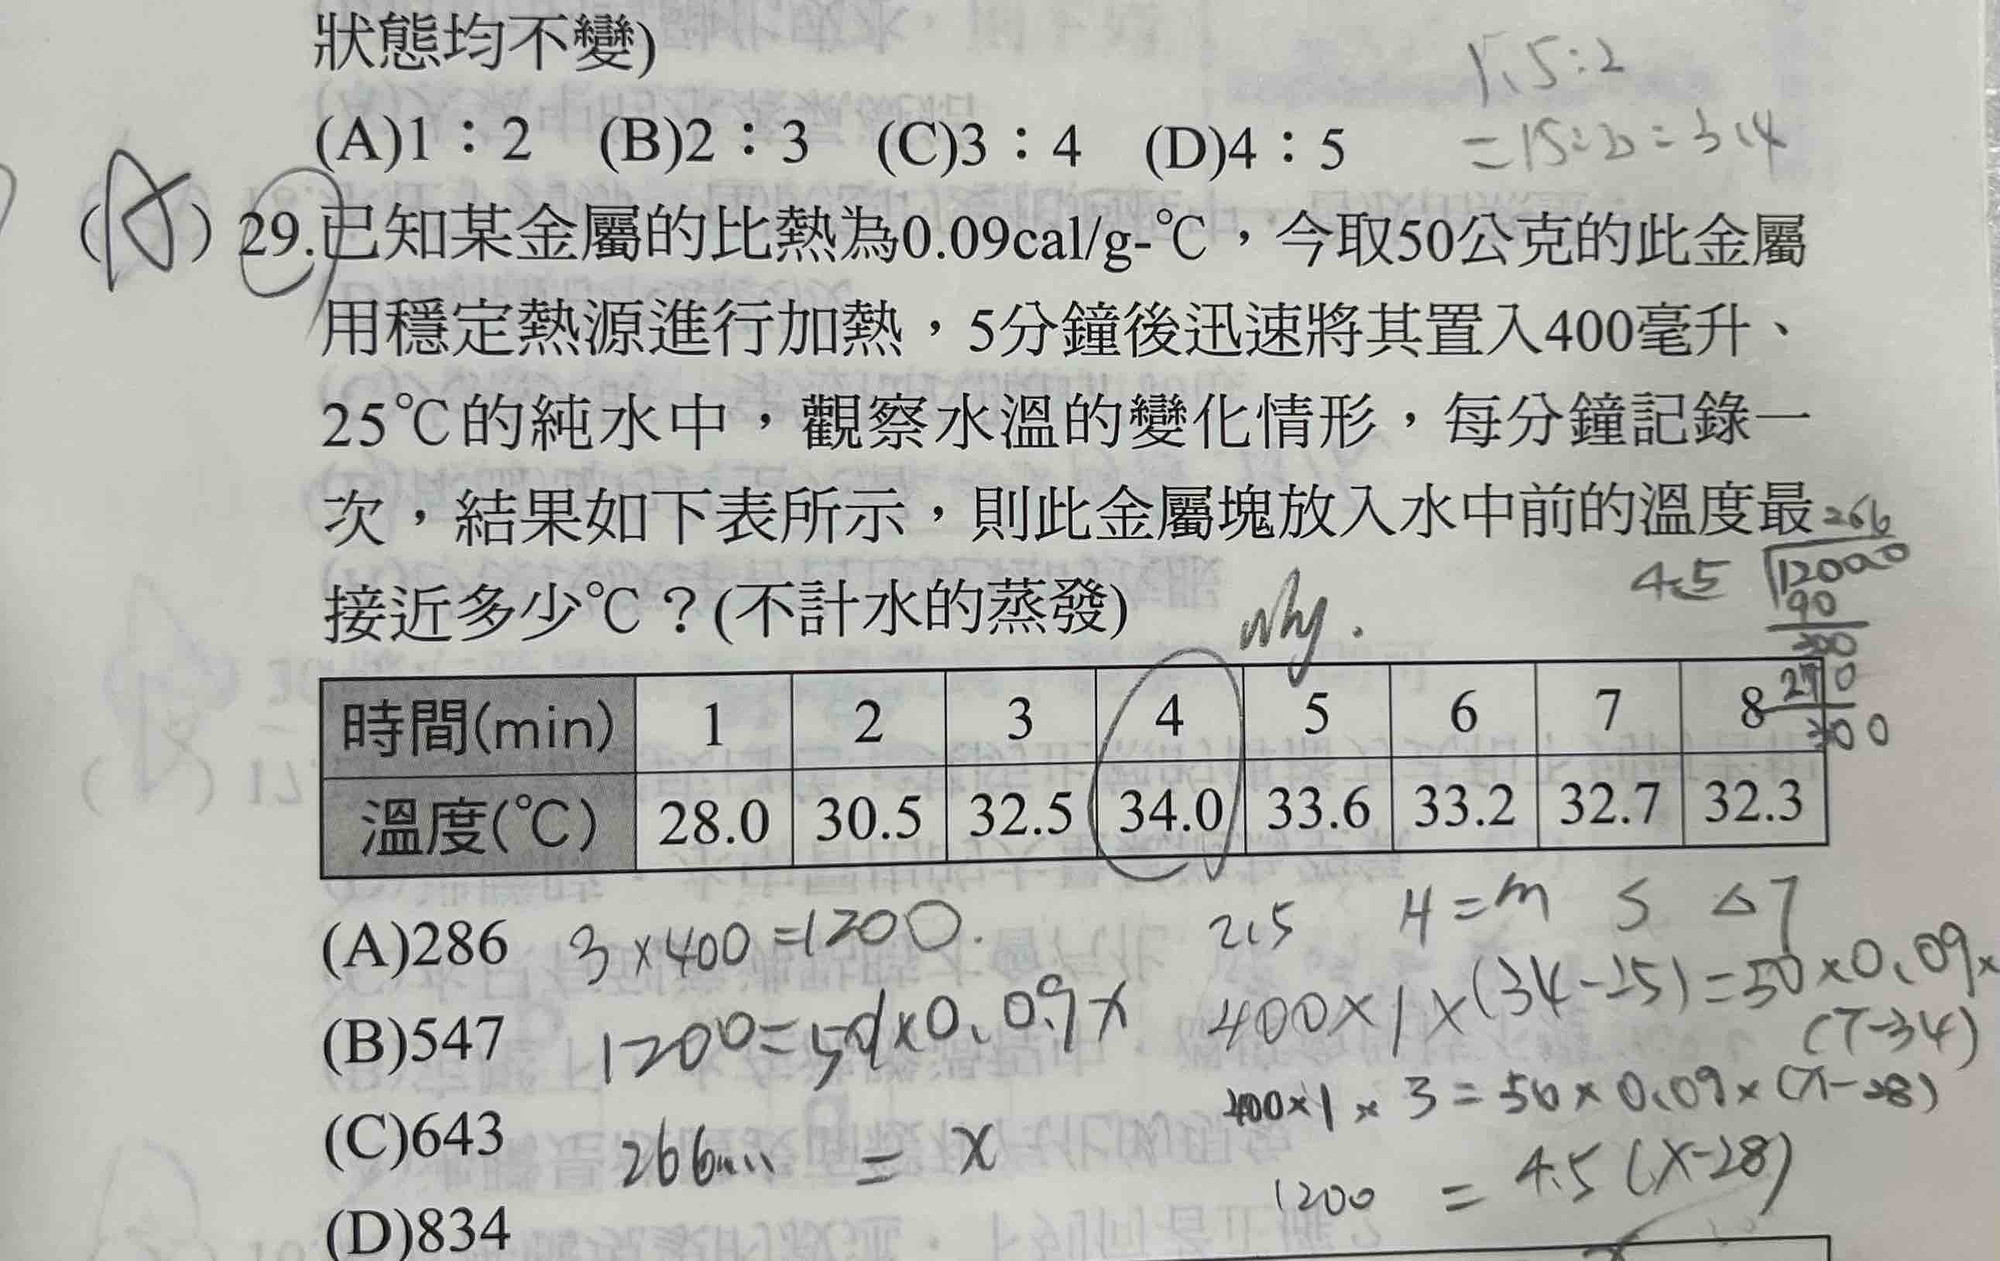 狀態均不變)
1.5:2
(A)1：2 (B)2：3 (C)3：4 (D)4：5
=15:20=3:4
(A) 29.已知某金屬的比熱為0.09cal/g-℃，今取50公克的此金屬
用穩定熱源進行加熱，5分鐘後迅速將其置入400毫升、
25℃的純水中，觀察水溫的變化情形，每分鐘記錄一
次，結果如下表所示，則此金屬塊放入水中前的溫度最
接近多少℃？(不計水的蒸發)
why.
266
4.5 12000
90
300
270
300
時間(min) 1 2 3 4 5 6 7 8
溫度(℃) 28.0 30.5 32.5 34.0 33.6 33.2 32.7 32.3
(A)286 3×400=1200.
2.5 H=m S △T
400×1×(34-25)=50×0.09×
(T-34)
(B)547 1200=50×0.09x
400×1×3=50×0.09×(x-28)
(C)643 266 = x
1200 = 4.5(x-28)
(D)834